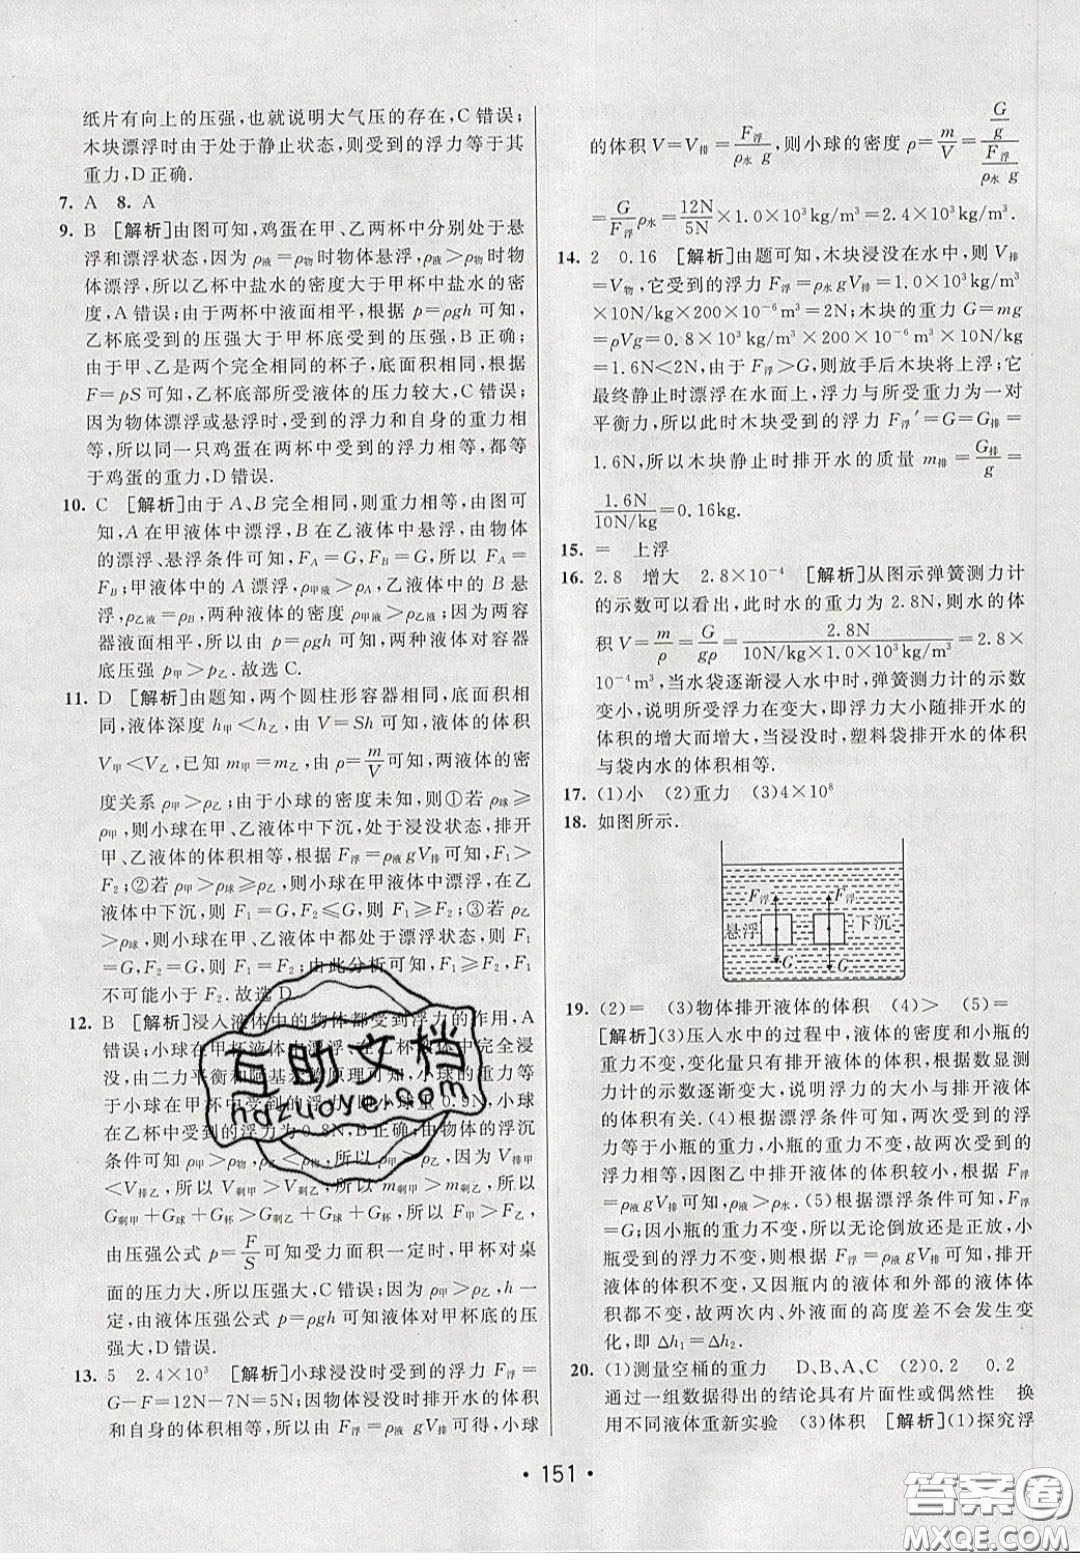 纸片有向上的压强,也就说明大气压的存在,C错误;
木块漂浮时由于处于静止状态,则受到的浮力等于其
重力,D正确.
7. A 8. A
9. B [解析]由图可知,鸡蛋在甲、乙两杯中分别处于悬
浮和漂浮状态,因为ρ液=ρ物时物体悬浮,ρ液>ρ物时物体
漂浮,所以乙杯中盐水的密度大于甲杯中盐水的密
度,A错误;由于两杯中液面相平,根据p=ρgh可知,
乙杯底受到的压强大于甲杯底受到的压强,B正确;
由于甲、乙是两个完全相同的杯子,底面积相同,根据
F=pS可知,乙杯底部所受液体的压力较大,C错误;
因为物体漂浮或悬浮时,受到的浮力和自身的重力相
等,所以同一只鸡蛋在两杯中受到的浮力相等,都等
于鸡蛋的重力,D错误.
10. C [解析]由于A、B完全相同,则重力相等,由图可
知,A在甲液体中漂浮,B在乙液体中悬浮,由物体
的漂浮、悬浮条件可知,FA=G,FB=G,所以FA=
FB;甲液体中的A漂浮,ρ甲液>ρA,乙液体中的B悬
浮,ρ乙液=ρB,两种液体的密度ρ甲液>ρ乙液;因为两容
器液面相平,所以由p=ρgh可知,两种液体对容器
底压强p甲>p乙.故选C.
11. D [解析]由题知,两个圆柱形容器相同,底面积相
同,液体深度h甲<h乙,由V=Sh可知,液体的体积
V甲<V乙,已知m甲=m乙,由ρ=m/V可知,液体的密
度关系ρ甲>ρ乙;由于小球的密度未知,则①若ρ球≥
ρ甲,则小球在甲、乙液体中下沉,处于浸没状态,排开
甲、乙液体的体积相等,根据F浮=ρ液gV排可知,F1>
F2;②若ρ甲>ρ球≥ρ乙,则小球在甲液体中漂浮,在乙
液体中下沉,则F1=G,F2≤G,则F1≥F2;③若ρ乙
>ρ球,则小球在甲、乙液体中都处于漂浮状态,则F1
=G,F2=G,则F1=F2;由此分析可知,F1≥F2,F1
不可能小于F2.故选D.
12. B [解析]浸入液体中的物体都受到浮力的作用,A
错误;小球在甲杯液体中漂浮,在乙杯液体中完全浸
没,由二力平衡和阿基米德原理可知,小球的重力等
于小球在甲杯中受到的浮力,即小球重0.9N,小球
在乙杯中受到的浮力为0.8N,B正确;由物体的浮沉
条件可知ρ甲>ρ物,ρ乙<ρ物,所以ρ甲>ρ乙,因为V排甲
<V排乙,所以V剩甲>V剩乙,所以m剩甲>m剩乙,所以
G剩甲+G球+G杯>G剩乙+G球+G杯,所以F甲>F乙,
由压强公式p=F/S可知受力面积一定时,甲杯对桌
面的压力大,所以压强大,C错误;因为ρ甲>ρ乙,h一
定,由液体压强公式p=ρgh可知液体对甲杯底的压
强大,D错误.
13. 5 2.4×10³ [解析]小球浸没时受到的浮力F浮=
G-F=12N-7N=5N;因物体浸没时排开水的体积
和自身的体积相等,所以由F浮=ρ液gV排可得,小球
的体积V=V排=F浮/(ρ水g),则小球的密度ρ=m/V=(G/g)/(F浮/(ρ水g))
=G/F浮 ρ水=12N/5N×1.0×10³kg/m³=2.4×10³kg/m³.
14. 2 0.16 [解析]由题可知,木块浸没在水中,则V排
=V物,它受到的浮力F浮=ρ水gV排=1.0×10³kg/m³
×10N/kg×200×10⁻⁶m³=2N;木块的重力G=mg
=ρVg=0.8×10³kg/m³×200×10⁻⁶m³×10N/kg
=1.6N<2N,由于F浮>G,则放手后木块将上浮;它
最终静止时漂浮在水面上,浮力与所受重力为一对
平衡力,所以此时木块受到的浮力F浮′=G=G排=
1.6N,所以木块静止时排开水的质量m排=G排/g=
1.6N/10N/kg=0.16kg.
15. = 上浮
16. 2.8 增大 2.8×10⁻⁴ [解析]从图示弹簧测力计
的示数可以看出,此时水的重力为2.8N,则水的体
积V=m/ρ=G/gρ=2.8N/(10N/kg×1.0×10³kg/m³)=2.8×
10⁻⁴m³,当水袋逐渐浸入水中时,弹簧测力计的示数
变小,说明所受浮力在变大,即浮力大小随排开水的
体积的增大而增大,当浸没时,塑料袋排开水的体积
与袋内水的体积相等.
17. (1)小 (2)重力 (3)4×10⁸
18. 如图所示.
F浮 F浮
悬浮 下沉
G G
19. (2)= (3)物体排开液体的体积 (4)> (5)=
[解析](3)压入水中的过程中,液体的密度和小瓶的
重力不变,变化量只有排开液体的体积,根据数显测
力计的示数逐渐变大,说明浮力的大小与排开液体的
体积有关.(4)根据漂浮条件可知,两次受到的浮
力等于小瓶的重力,小瓶的重力不变,故两次受到的
浮力相等,因图乙中排开液体的体积较小,根据F浮
=ρ液gV排可知,ρ液>ρ水.(5)根据漂浮条件可知,F浮
=G;因小瓶的重力不变,所以无论倒放还是正放,小
瓶受到的浮力不变,根据F浮=ρ液gV排可知,排开
液体的体积不变,又因瓶内的液体和外部的液体体积
都不变,故两次内、外液面的高度差不会发生变
化,即Δh1=Δh2.
20. (1)测量空桶的重力 D、B、A、C (2)0.2 0.2
通过一组数据得出的结论具有片面性或偶然性 换
用不同液体重新实验 (3)体积 [解析](1)探究浮
· 151 ·
互助文档
hdzuoye.com
答案圈
MXQE.COM